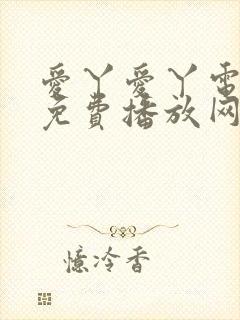 愛丫愛丫電
免費播放网
憶冷香